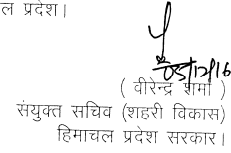 ल प्रदेश।
03/12/16
( वीरेन्द्र शर्मा )
संयुक्त सचिव (शहरी विकास)
हिमाचल प्रदेश सरकार।